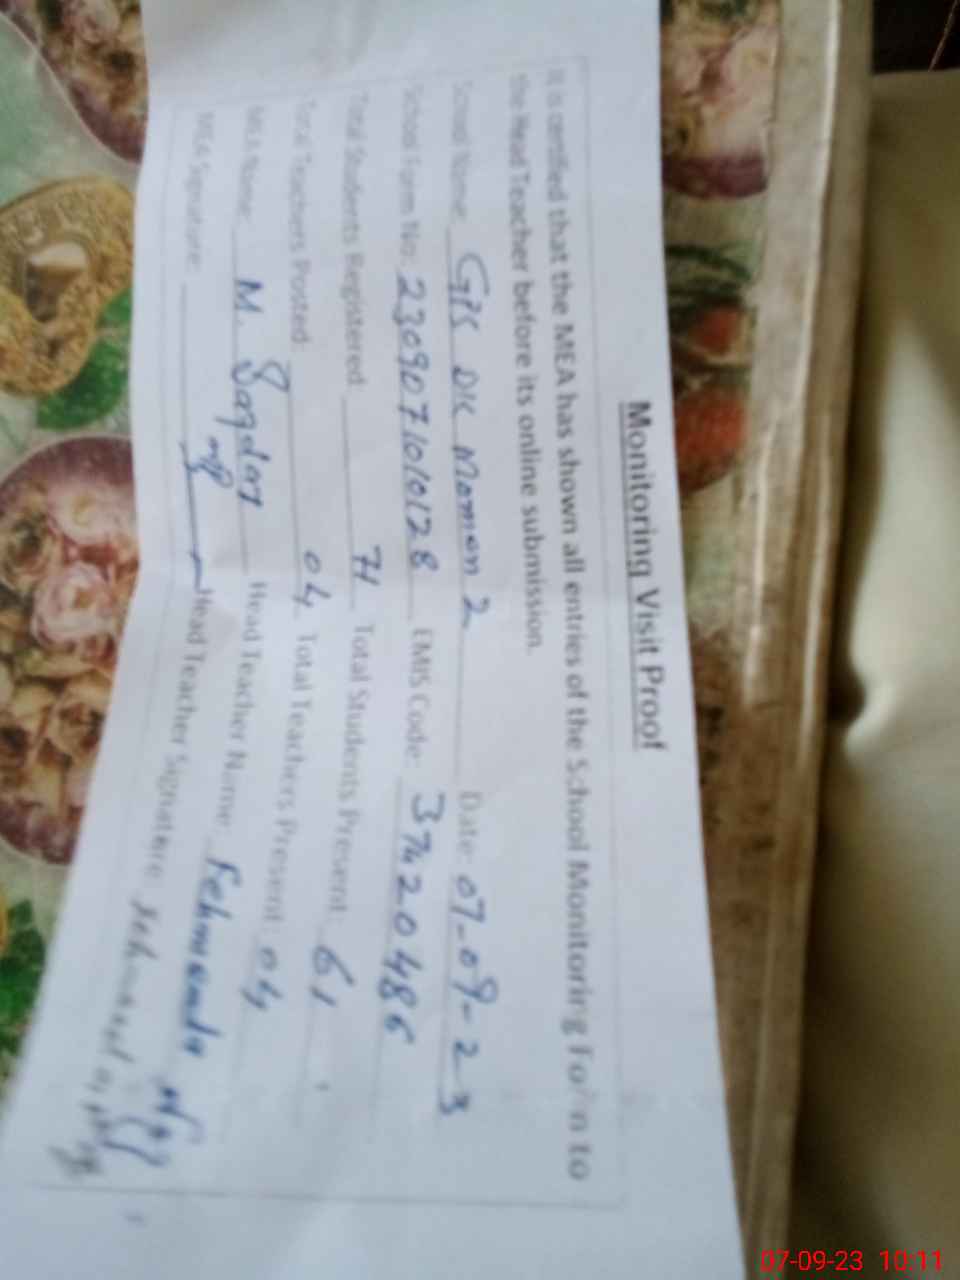 Monitoring Visit Proof
It is certified that the MEA has shown all entries of the School Monitoring Form to
the Head Teacher before its online submission.
School Name: GPS DK Momen 2 Date: 07-09-23
School Form No: 2309071010128 EMIS Code: 37420486
Total Students Registered 71 Total Students Present: 61
Total Teachers Posted: 04 Total Teachers Present: 04
MEA Name: M. Head Teacher Name: Fehmeeda
MEA Signature: Head Teacher Signature:
07-09-23 10:11